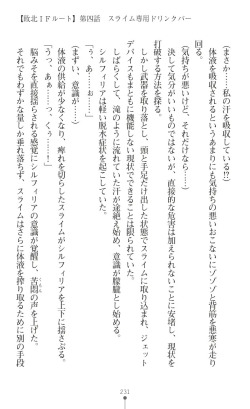 【敗北IFルート】第四話　スライム専用ドリンクバー
（まさか……私の汗を吸収している!?）
体液を吸収されるというあまりにも気持ちの悪いおこないにゾゾゾと背筋を悪寒が走り
回る。
（気持ちが悪いけど……それだけなら）
決して気分がいいものではないが、直接的な危害は加えられないことに安堵し、現状を
打破する方法を探る。
しかし武器を取り落とし、頭と手足だけ出した状態でスライムに取り込まれ、ジェット
デバイスもまともに機能しない状況でできることは限られていた。
しばらくして、だくだくに流れていた汗が途絶え始め、意識が朦朧とし始める。
シルフィリアは軽い脱水症状を起こしていた。
「う、あ、ぅ……」
（まずい、意識が……）
体液の供給が少なくなり、痺れを切らしたスライムがシルフィリアを上下に揺さぶる。
「うっ、あぁっ、……っ」
脳みそを直接揺らされる感覚にシルフィリアの意識が覚醒し、苦悶の声を上げた。
それでもわずかな量しか垂れ落ちず、スライムはさらに体液を搾り取るために別の手段
231